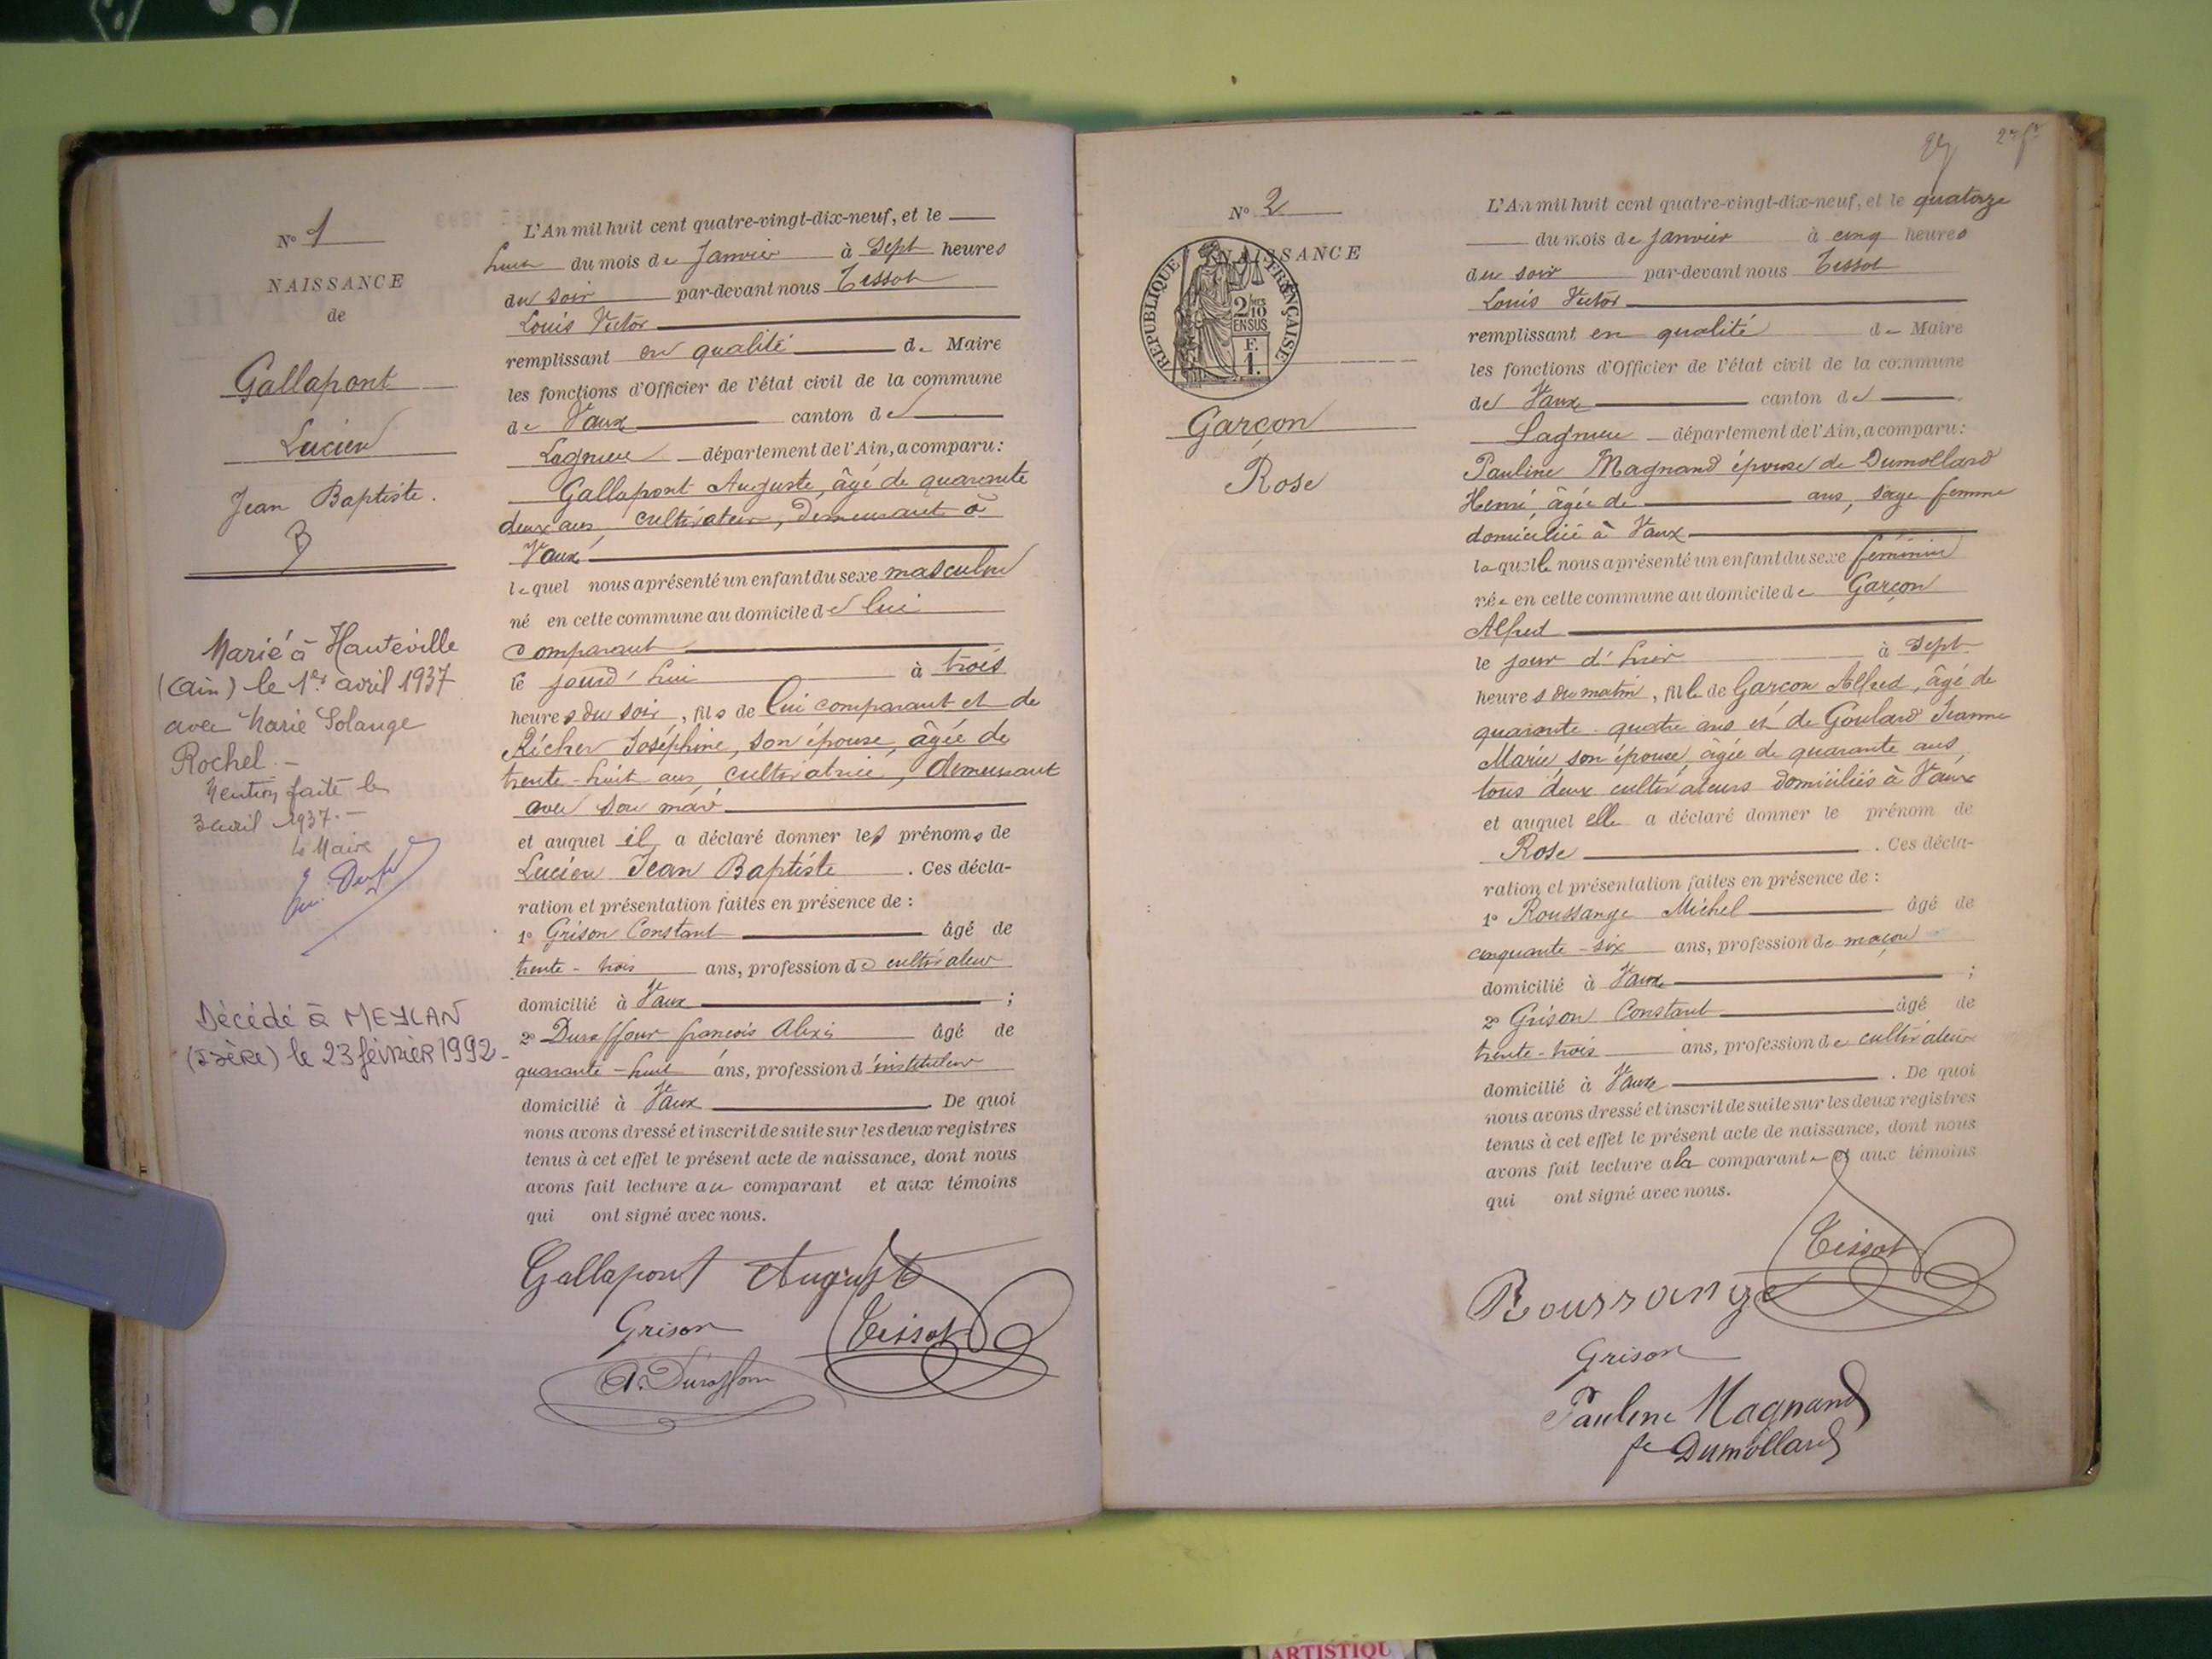 N° 1
NAISSANCE
de
Gallapont
Lucien
Jean Baptiste.
Marié à Hauteville
(Ain) le 1er avril 1937
avec Marie Solange
Rochel.-
Mention faite le
3 avril 1937.-
Le Maire
Décédé à MEYLAN
(Isère) le 23 février 1992-
L'An mil huit cent quatre-vingt-dix-neuf, et le
huit du mois de Janvier à sept heures
du soir par-devant nous Tissot
Louis Victor
remplissant en qualité de Maire
les fonctions d'Officier de l'état civil de la commune
de Vaux canton de
Lagnieu département de l'Ain, a comparu:
Gallapont Auguste, âgé de quarante
deux ans, cultivateur, demeurant à
Vaux
lequel nous a présenté un enfant du sexe masculin
né en cette commune au domicile de lui
comparant
le jourd'hui à trois
heures du soir, fils de lui comparant et de
Richer Joséphine, son épouse, âgée de
trente-huit ans, cultivatrice, demeurant
avec son mari
et auquel il a déclaré donner les prénoms de
Lucien Jean Baptiste. Ces décla-
ration et présentation faites en présence de :
1° Grison Constant âgé de
trente-trois ans, profession de cultivateur
domicilié à Vaux ;
2° Duraffour françois Alexis âgé de
quarante-huit ans, profession d'instituteur
domicilié à Vaux. De quoi
nous avons dressé et inscrit de suite sur les deux registres
tenus à cet effet le présent acte de naissance, dont nous
avons fait lecture au comparant et aux témoins
qui ont signé avec nous.
Gallapont Auguste
Grison Tissot
A. Duraffour
N° 2
NAISSANCE
RÉPUBLIQUE FRANÇAISE
2/10
EN SUS
F.
1.
Garçon
Rose
L'An mil huit cent quatre-vingt-dix-neuf, et le quatorze
du mois de Janvier à cinq heures
du soir par-devant nous Tissot
Louis Victor
remplissant en qualité de Maire
les fonctions d'Officier de l'état civil de la commune
de Vaux canton de
Lagnieu département de l'Ain, a comparu:
Pauline Magnand épouse de Dumollard
Henri, âgée de ans, sage femme
domiciliée à Vaux
laquelle nous a présenté un enfant du sexe féminin
née en cette commune au domicile de Garçon
Alfred
le jour d'hier à sept
heures du matin, fille de Garçon Alfred, âgé de
quarante-quatre ans et de Goulard Jeanne
Marie, son épouse, âgée de quarante ans
tous deux cultivateurs domiciliés à Vaux
et auquel elle a déclaré donner le prénom de
Rose. Ces décla-
ration et présentation faites en présence de :
1° Roussange Michel âgé de
cinquante-six ans, profession de maçon
domicilié à Vaux ;
2° Grison Constant âgé de
trente-trois ans, profession de cultivateur
domicilié à Vaux. De quoi
nous avons dressé et inscrit de suite sur les deux registres
tenus à cet effet le présent acte de naissance, dont nous
avons fait lecture a la comparante et aux témoins
qui ont signé avec nous.
Tissot
Roussange
Grison
Pauline Magnand
fe Dumollard
ARTISTIQU